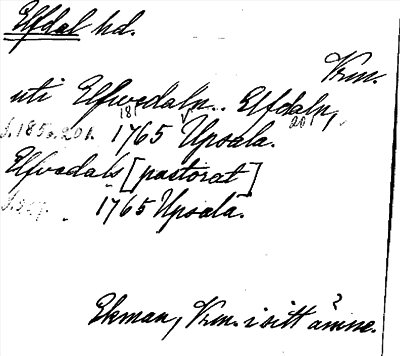 Elfdal hd.
Vrm.
uti Elfwedaln.. Elfdaln,
181 201
s. 185, 201. 1765 Upsala.
Elfvedals [pastorat]
1765 Upsala.
Ekman, Vrm. i sitt ämne.